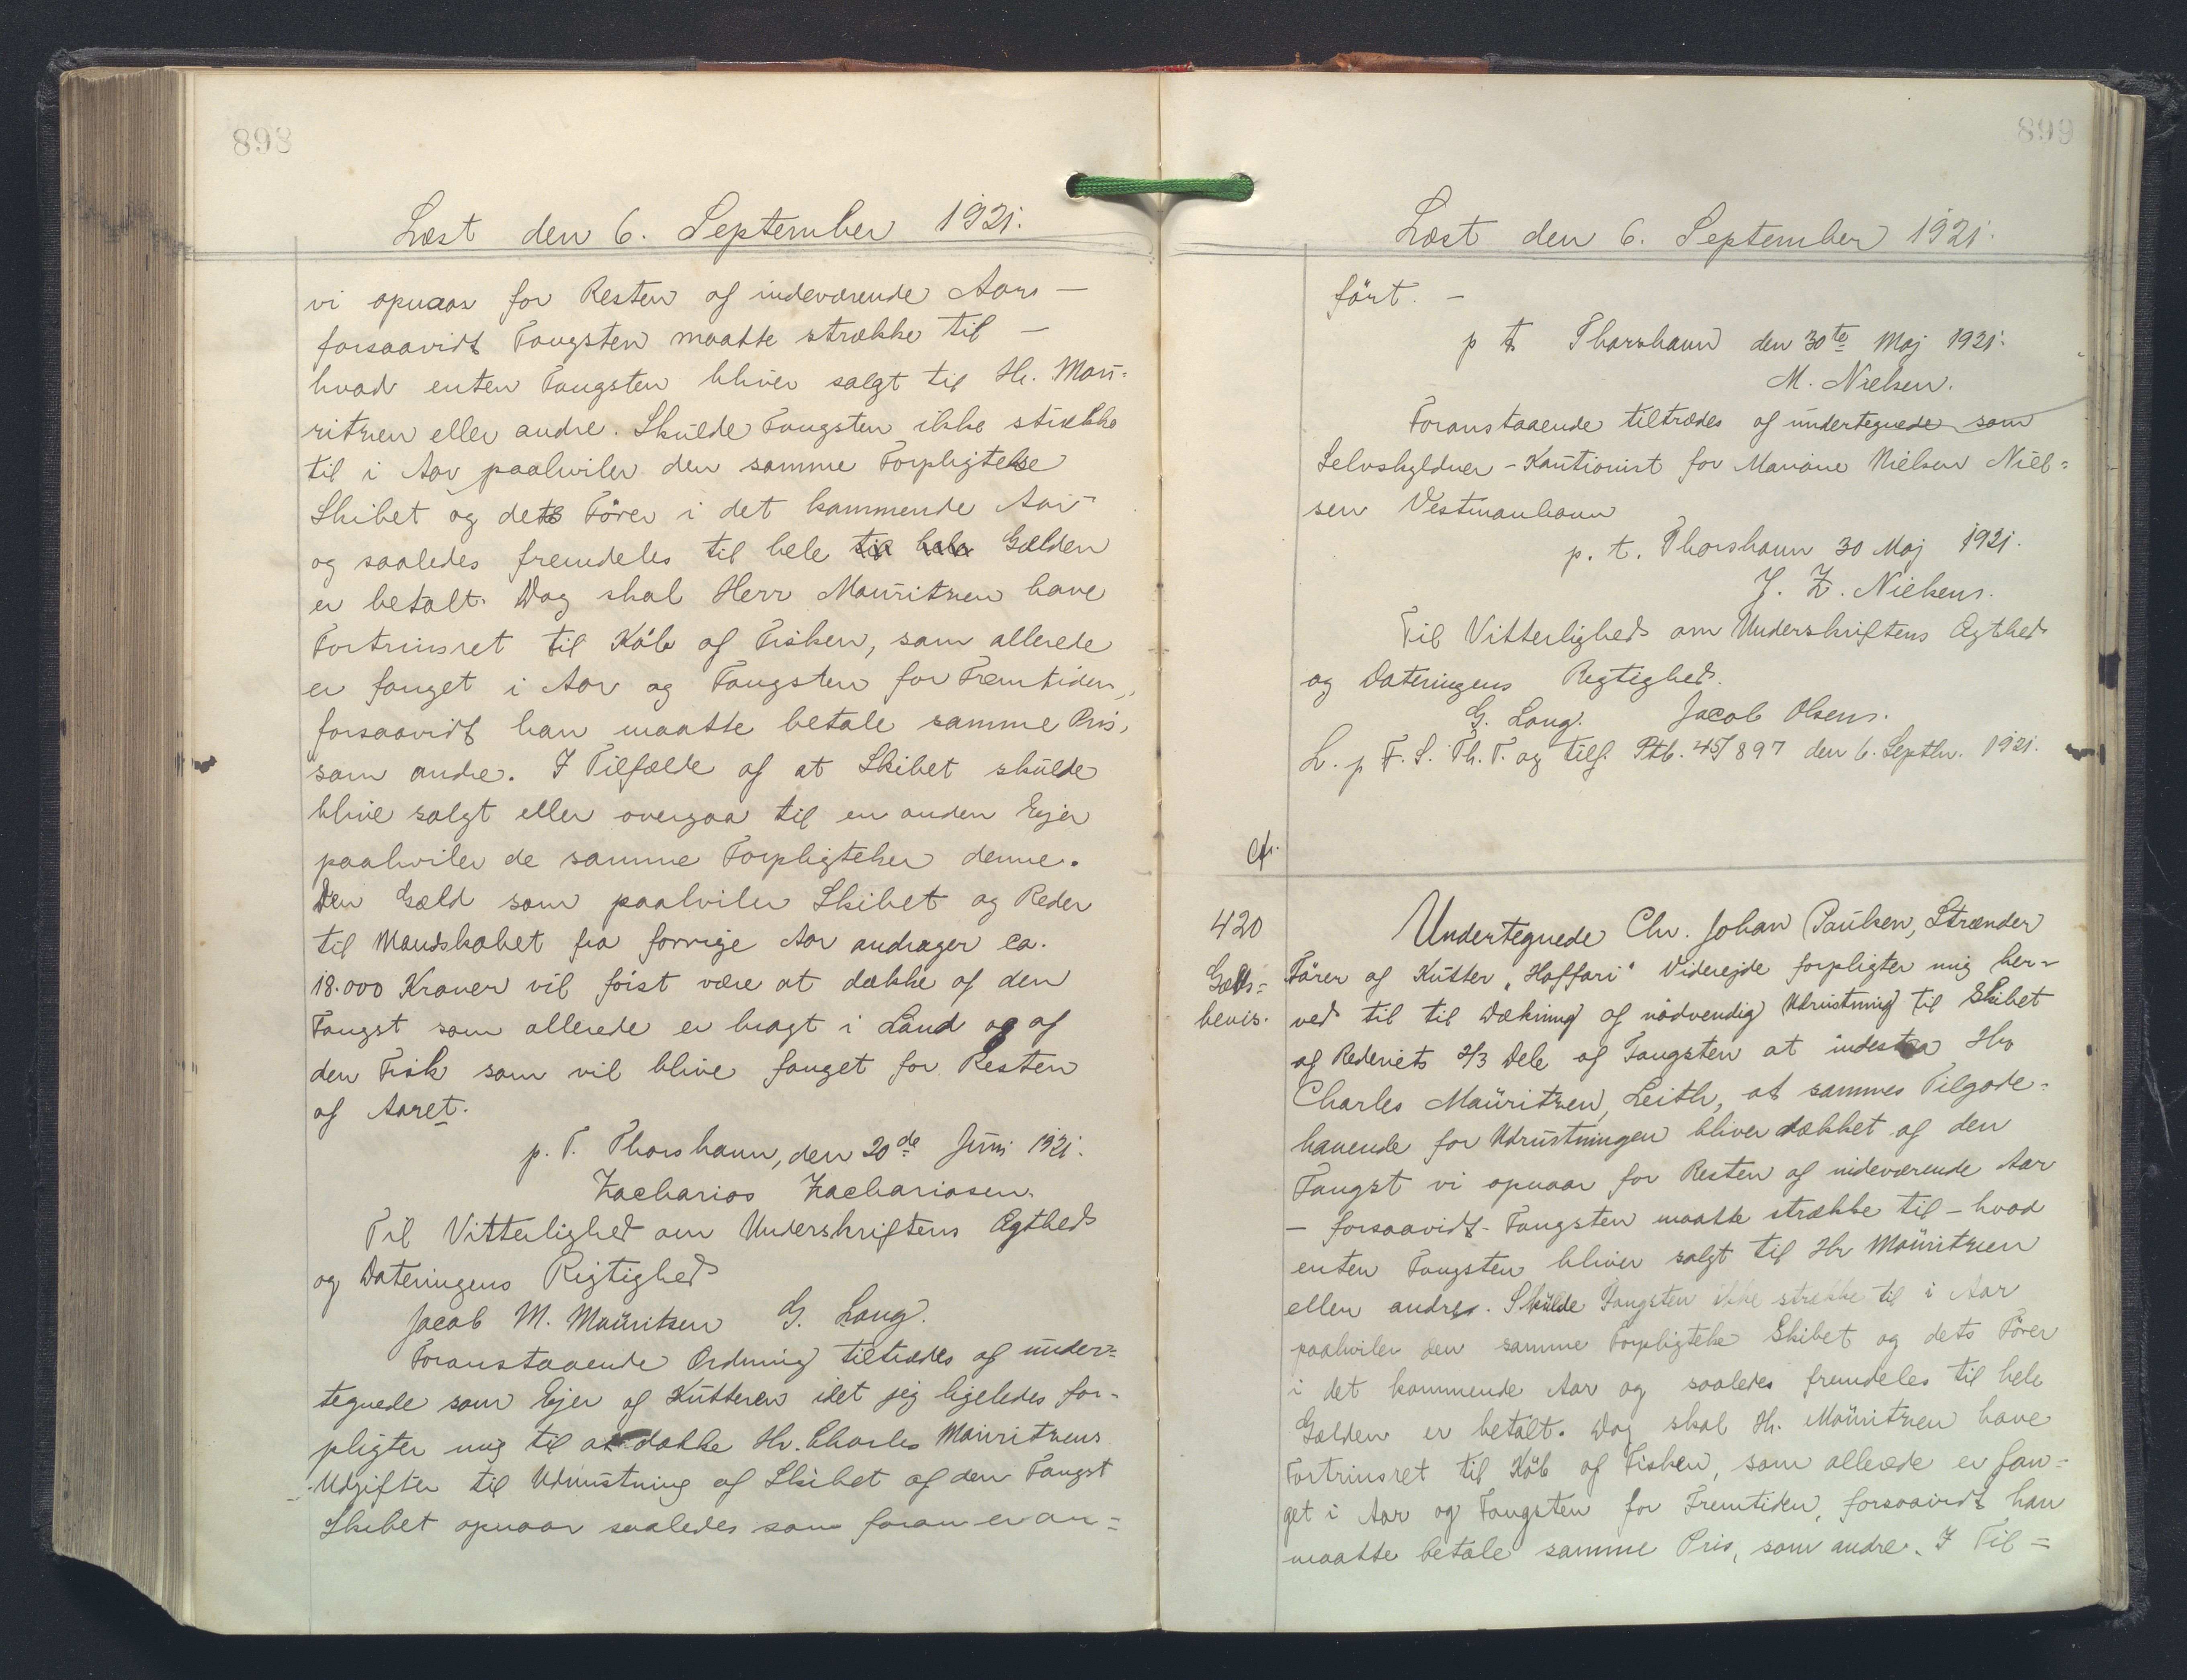 898
Læst den 6. September 1921.
vi opnaar for Resten af indeværende Aars —
forsaavidt Fangsten maatte strække til —
hvad enten Fangsten bliver solgt til Hr. Mau=
ritzen eller andre. Skulde Fangsten ikke strække
til i Aar paahviler den samme Forpligtelse
Skibet og dets Förer i det kommende Aar
og saaledes fremdeles til hele til hele Gælden
er betalt. Dog skal Herr Mauritzen have
Fortrinsret til Köb af Fisken, som allerede
er fanget i Aar og Fangsten for Fremtiden,
forsaavidt han maatte betale samme Pris,
som andre. I Tilfælde af at Skibet skulde
blive solgt eller overgaa til en anden Ejer
paahviler de samme Forpligtelser denne.
Den Gæld som paahviler Skibet og Reder
til Mandskabet fra forrige Aar andrager ca.
18.000 Kroner vil först være at dække af den
Fangst som allerede er bragt i Land og af
den Fisk som vil blive fanget for Resten
af Aaret.
p. T. Thorshavn, den 20de Juni 1921.
Zacharias Zachariasen.
Til Vitterlighed om Underskriftens Ægthed
og Dateringens Rigtighed
Jacob M. Mauritsen G. Lang.
Foranstaaende Ordning tiltrædes af under=
tegnede som Ejer af Kutteren idet jeg ligeledes for=
pligter mig til at dække Hr. Charles Mauritzens
Udgifter til Udrustning af Skibet af den Fangst
Skibet opnaar saaledes som foran er an=
899
Læst den 6. September 1921.
fört. —
p t Thorshavn den 30te Maj 1921.
M. Nielsen.
Foranstaaende tiltrædes af undertegnede som
Selvskyldner - Kautionist for Marione Nielsen Niel=
sen Vestmanhavn
p. t. Thorshavn 30 Maj 1921.
J. Z. Nielsen.
Til Vitterlighed om Underskriftens Ægthed
og Dateringens Rigtighed.
G. Lang. Jacob Olsen.
L. p F. S. Th. T. og tilf. Ptb. 45/897 den 6. Septbr. 1921.
cfr.
420
Gælds=
bevis.
Undertegnede Chr. Johan Paulsen, Strænder
Förer af Kutter „Haffari“ Viderejde forpligter mig her=
ved til til Dækning af nödvendig Udrustning til Skibet
af Rederiets 2/3 Dele af Fangsten at indestaa Hr
Charles Mauritzen, Leith, at sammes Tilgode=
havende for Udrustningen bliver dækket af den
Fangst vi opnaar for Resten af indeværende Aar
— forsaavidt Fangsten maatte strække til — hvad
enten Fangsten bliver solgt til Hr Mauritzen
eller andre. Skulde Fangsten ikke strække til i Aar
paahviler den samme Forpligtelse Skibet og dets Förer
i det kommende Aar og saaledes fremdeles til hele
Gælden er betalt. Dog skal Hr. Mauritzen have
Fortrinsret til Köb af Fisken, som allerede er fan=
get i Aar og Fangsten for Fremtiden, forsaavidt han
maatte betale samme Pris, som andre. I Til=